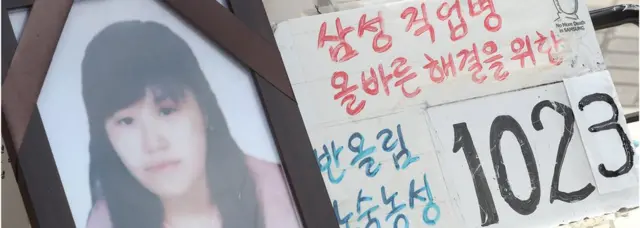 No More Death
in SAMSUNG
삼성 직업병
올바른 해결을 위한
반올림
노숙농성
1023